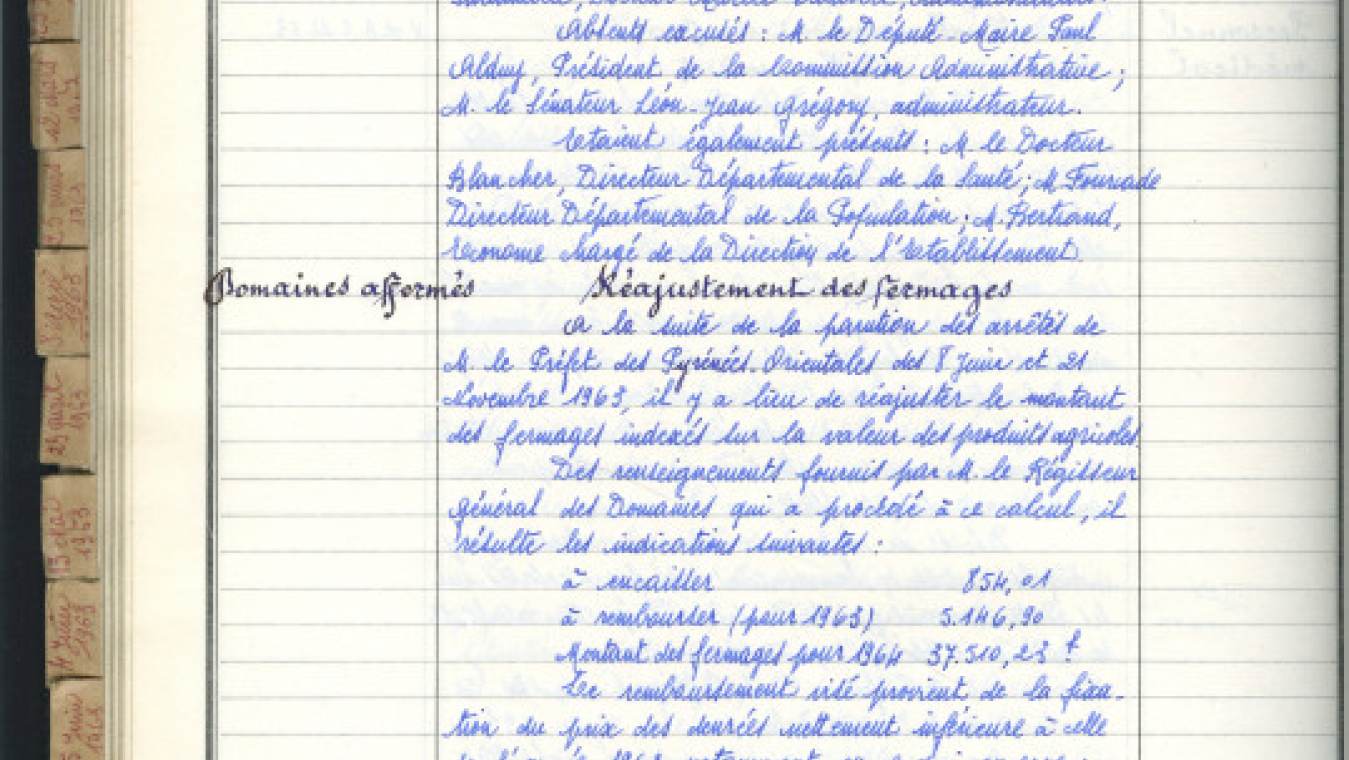 Absents excusés : M. le Député-Maire Paul
Alduy, Président de la Commission Administrative ;
M. le Sénateur Léon-Jean Grégory, administrateur.
Etaient également présents : M. le Docteur
Blancher, Directeur Départemental de la Santé ; M. Fourcade
Directeur Départemental de la Population ; M. Bertrand,
Econome chargé de la Direction de l'Etablissement.
Domaines affermés
Réajustement des fermages
A la suite de la parution des arrêtés de
M. le Préfet des Pyrénées-Orientales des 8 Juin et 21
Novembre 1963, il y a lieu de réajuster le montant
des fermages indexés sur la valeur des produits agricoles.
Des renseignements fournis par M. le Régisseur
général des Domaines qui a procédé à ce calcul, il
résulte les indications suivantes :
à encaisser 854,01
à rembourser (pour 1963) 5.146,90
Montant des fermages pour 1964 37.510,23 f
Le remboursement visé provient de la fixa-
tion du prix des denrées nettement inférieure à celle
12 Mars
3 Sept
1963
23 avril
1963
15 Mai
1963
4 Juin
1963
Juin
1963